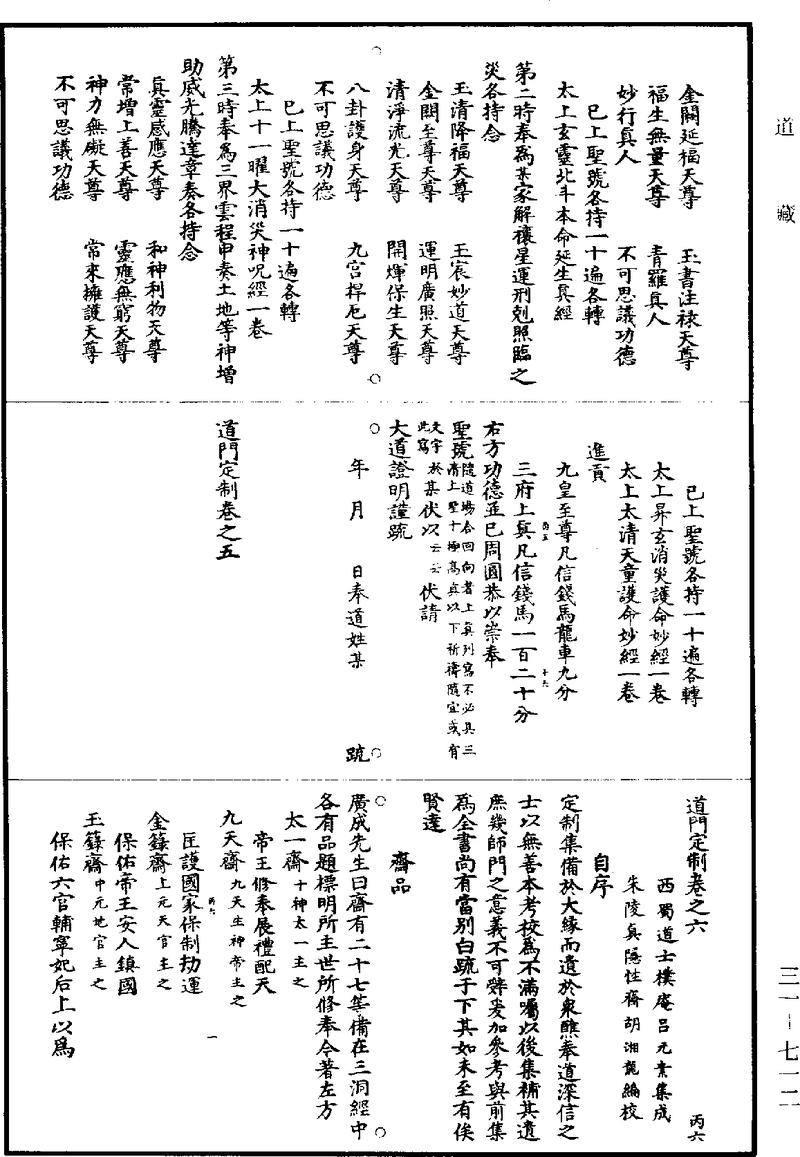 道藏
金闕延福天尊　玉書注祿天尊
福生無量天尊　青羅真人
妙行真人　不可思議功德
已上聖號各持一十遍各轉
太上玄靈北斗本命延生真經
第二時奉為某家解禳星運刑剋照臨之
災各持念
玉清降福天尊　玉宸妙道天尊
金闕至尊天尊　運明廣照天尊
清淨流光天尊　開煇保生天尊
八卦護身天尊　九宮捍厄天尊
不可思議功德
已上聖號各持一十遍各轉
太上十一曜大消災神呪經一卷
第三時奉為三界雲程申奏土地等神增
助威光騰達章奏各持念
真靈感應天尊　和神利物天尊
常增上善天尊　靈應無窮天尊
神力無礙天尊　常來擁護天尊
不可思議功德
已上聖號各持一十遍各轉
太上昇玄消災護命妙經一卷
太上太清天童護命妙經一卷
進貢
九皇至尊凡信錢馬龍車九分
三府上真凡信錢馬一百二十分
丙五
十六
右方功德並已周圓恭以崇奉
聖號隨道場合回向者上真列寫不必具三清上聖十極高真以下祈禱隨宜或有文字於某伏以云云伏請
此寫
大道證明謹疏
年　月　日奉道姓某　疏
道門定制卷之五
道門定制卷之六　丙六
西蜀道士樸庵呂元素集成
朱陵真隱性齋胡湘龍編校
自序
定制集備於大緣而遺於衆醮奉道深信之
士以無善本考校為不滿囑以後集補其遺
庶幾師門之意義不可辭爰加參考與前集
為全書尚有當别白疏于下其如未至有俟
賢達
齋品
廣成先生曰齋有二十七等備在三洞經中
各有品題標明所主世所修奉今著左方
太一齋十神太一主之
帝王修奉展禮配天
九天齋九天生神帝主之
匡護國家保制劫運
丙六
一
金籙齋上元天官主之
保佑帝王安人鎮國
玉籙齋中元地官主之
保佑六宫輔寧妃后上以為
三一—七一二